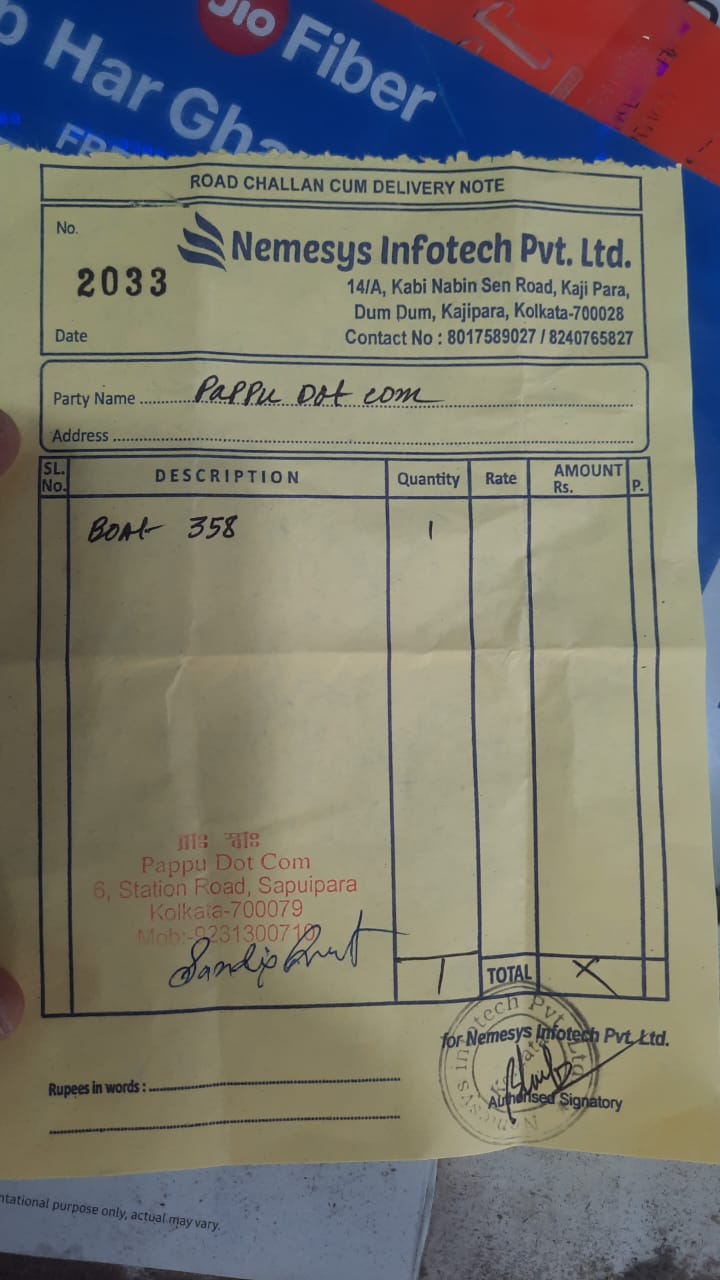 Jio Fiber
b Har Gha
ROAD CHALLAN CUM DELIVERY NOTE
No.
2033
Date
Nemesys Infotech Pvt. Ltd.
14/A, Kabi Nabin Sen Road, Kaji Para,
Dum Dum, Kajipara, Kolkata-700028
Contact No : 8017589027 / 8240765827
Party Name Pappu Dot com
Address
SL. No. DESCRIPTION Quantity Rate AMOUNT Rs. P.
BOAt 358 1
Pappu Dot Com
6, Station Road, Sapuipara
Kolkata-700079
Mob:-9231300710
1 TOTAL X
for Nemesys Infotech Pvt. Ltd.
Rupees in words :
Authorised Signatory
Nemesys infotech Pvt. Ltd.
Kolkata
ntational purpose only, actual may vary.